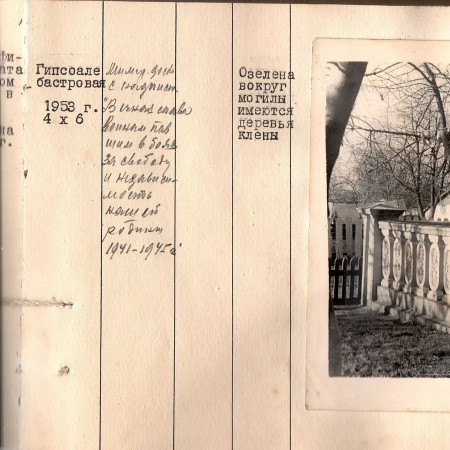 фи-
ата
ом
в
на
г.
Гипсоале
бастровая
1953 г.
4 х 6
с надпис.
"Вечная слава
воинам пав
шим в боях
за свободу
и независи-
мость
нашей
родины
1941-1945г"
Озелена
вокруг
могилы
имеются
деревья
клёны